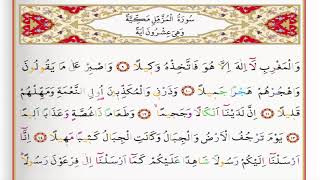 سُورَةُ الْمُزَّمِّلِ مَكِّيَّةٌ
وَهِيَ عِشْرُونَ آيَةً
وَالْمَغْرِبِ لَٓا اِلٰهَ اِلَّا هُوَ فَاتَّخِذْهُ وَك۪يلًا ﴿٩﴾ وَاصْبِرْ عَلٰى مَا يَقُولُونَ
وَاهْجُرْهُمْ هَجْرًا جَم۪يلًا ﴿١٠﴾ وَذَرْن۪ي وَالْمُكَذِّب۪ينَ اُو۬لِي النَّعْمَةِ وَمَهِّلْهُمْ
قَل۪يلًا ﴿١١﴾ اِنَّ لَدَيْنَٓا اَنْكَالًا وَجَح۪يمًا ﴿١٢﴾ وَطَعَامًا ذَا غُصَّةٍ وَعَذَابًا اَل۪يمًا
﴿١٣﴾ يَوْمَ تَرْجُفُ الْاَرْضُ وَالْجِبَالُ وَكَانَتِ الْجِبَالُ كَث۪يبًا مَه۪يلًا ﴿١٤﴾ اِنَّٓا
اَرْسَلْنَٓا اِلَيْكُمْ رَسُولًا شَاهِدًا عَلَيْكُمْ كَمَٓا اَرْسَلْنَٓا اِلٰى فِرْعَوْنَ رَسُولًا